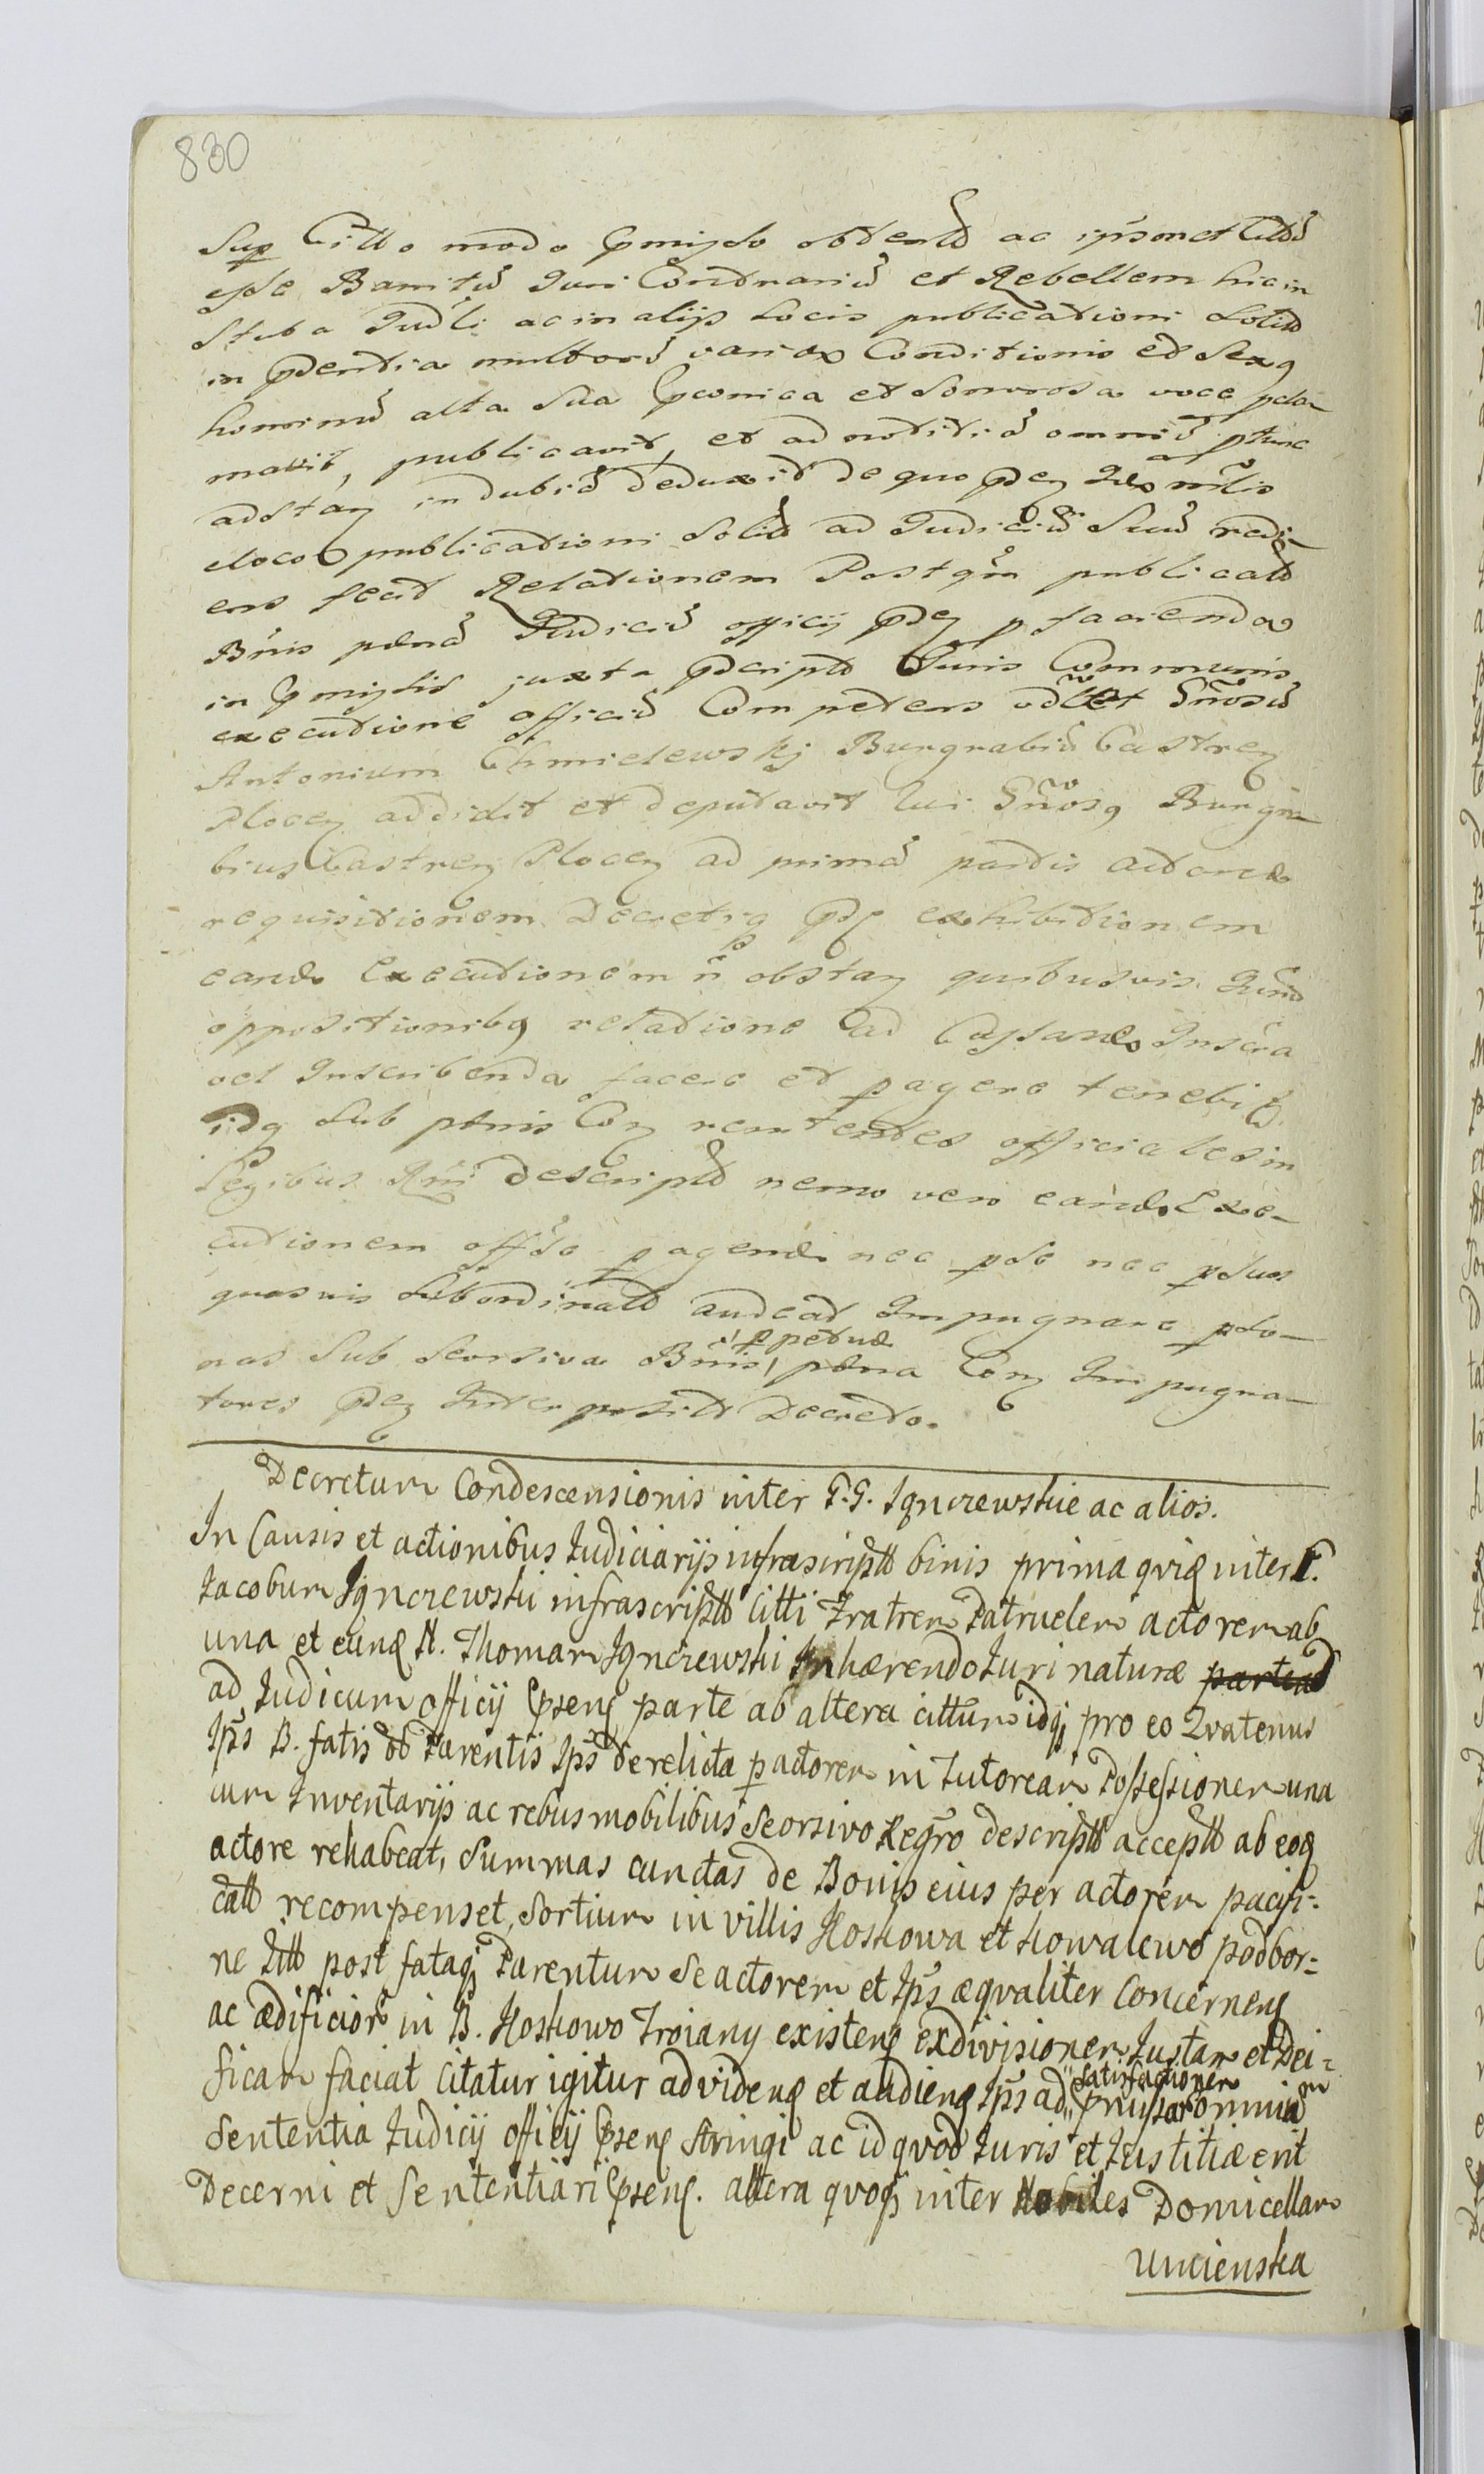 830
Sup Citto modo Pmisso obtentt ac ipsmet Cittu
esse Banitu Juri Contrariu et Rebellem hic in
Stuba Judli ac in alijs Locis publicationi Solitt
in Pdentia multoru variae Conditionis et Sexq
hominu alta Sua Pconica et Sonorosa voce pcla-
mavit, publicavit, et ad notitia omniu ptunc
adstan indubia deduxit de quo Pden
eloco publicationi Solitt ad Judiciu Suu redi-
ens fecit Relationem Postqm publicatt
Bnis pana Judiciu officij Pden p facienda
in Pmissis juxta Pscriptt Juris Communis
executione officiu Competens videlt Gnosu
Antonium Chmielewskj Burgrabiu Castren
Plocen addidit et deputavit qui Gnosq Burgra-
bius Castren Plocen ad prima partis actorea
requisitionem Decretiq Pdi exhibitionem
eande Executionem n obstan quibusvis Jurid
oppositionibq relatione ad Cassande Inscta
vel Inscribenda facere et pagere tenebitr
idq Sub panis Con renitentes officiales in
Legibus Rni descriptt nemo vero eande Exe-
cutionem offose pagende nec pse nec psuas
quasvis Subordinatt audeat Impugnare pso-
nas Sub Seorsiva Bnis, ppetuae pana Con Impugna-
tores Pden Interpositt Decreto.
Decretum Condescensionis inter G.G. Jgnczewskie ac alios.
In Causis et actionibus Judiciarijs infrascriptt binis prima qvid inter G.
Jacobum Jgnczewski infrascriptt Citti Fratrem Patruelem actorem ab
una et eund N. Thomam Jgnczewski Inhærendo Juri naturæ partead
ad Judicium officij Psens parte ab altera cittum idq pro eo Qvatenus
Jps B. fatis ob Parentis Jps derelicta p actorem in Tutoream Possessionem una
cum Inventarijs ac rebus mobilibus Seorsivo Regro descriptt acceptt ab eod
actore rehabeat, Summas cunctas de Bonis eius per actorem pacifi-
catt recompenset, Sortium in villis Koskowa et Kowalewo podbor-
ne Jtt post fataq Parentum Se actorem et Jps æqvaliter Concernens
ac ædificior in B. Koskowo Troiany existens exdivisionem Justam et Dei-
ficam faciat Citatur igitur ad videnq et audienq Jps ad satisfactionem Pmissor omnium
Sententia Judicij officij Psens Stringi ac id qvod Juris et Justitiæ erit
Decerni et Sententiari Psens. altera qvoq inter Nobiles Domicellam
Umienska